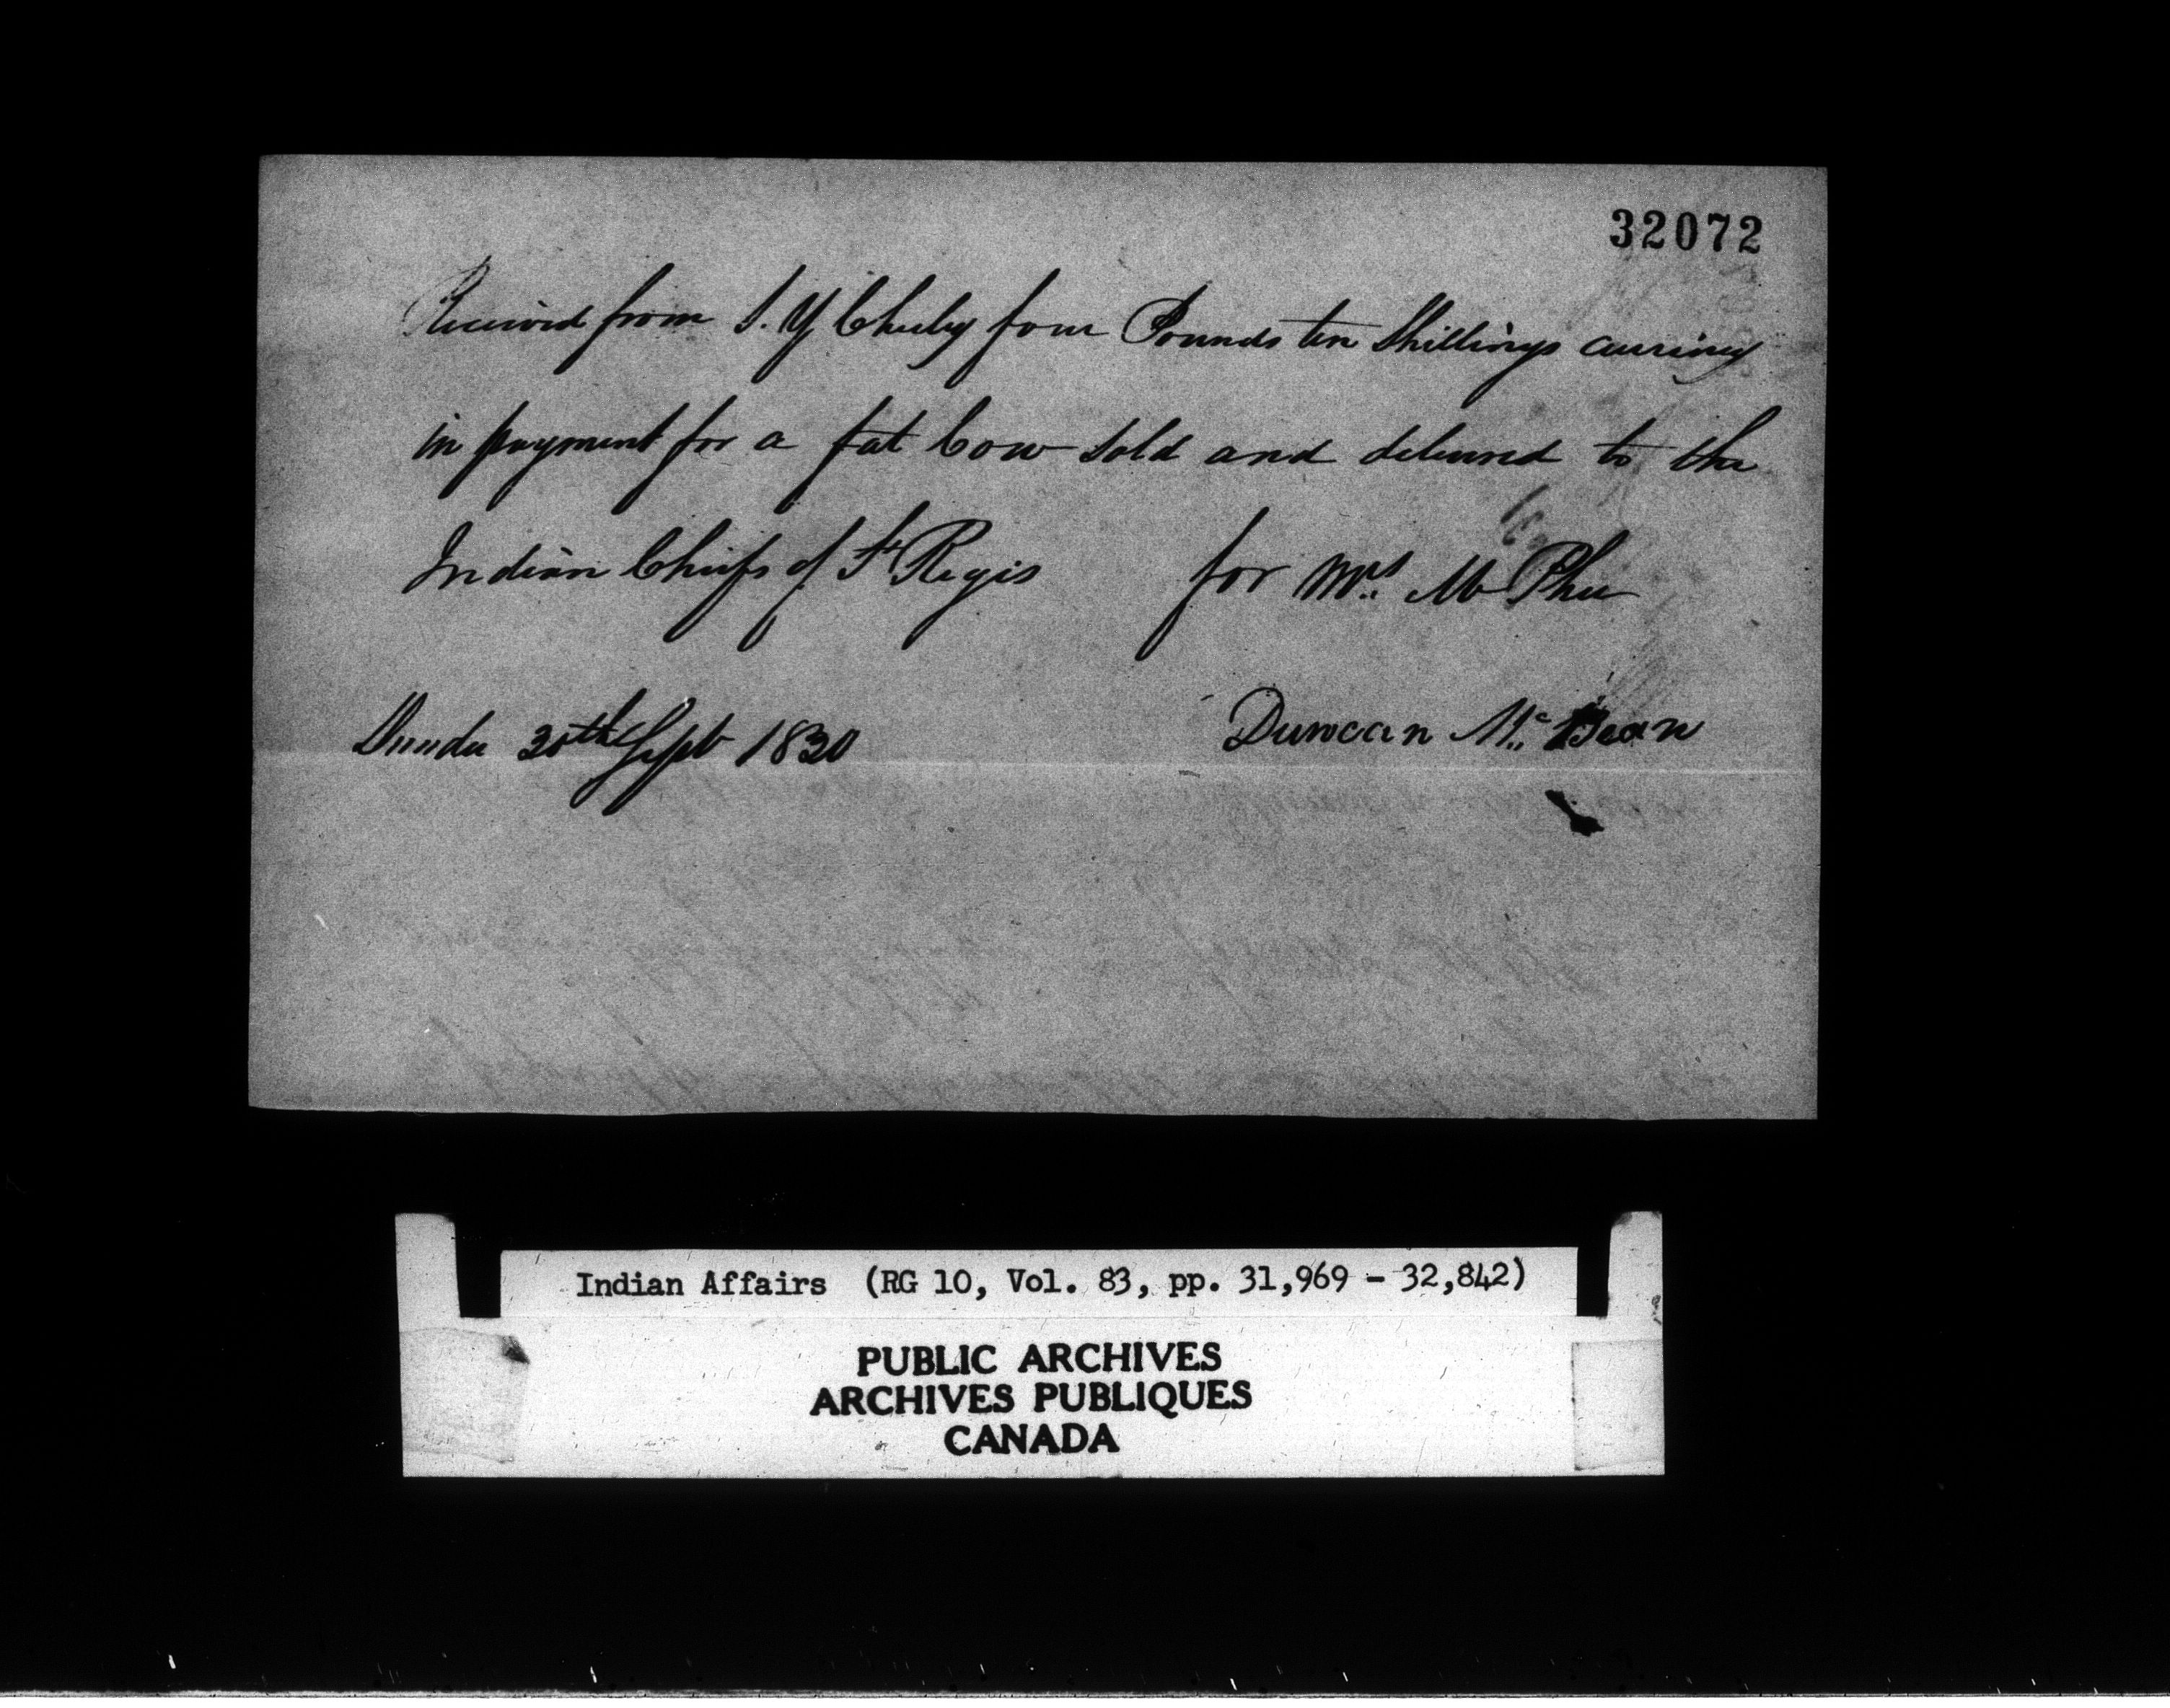 32072
Received from S. Y Chesley four Pounds ten Shillings currincy
in payment for a fat Cow sold and delivred to the
Indian Chiefs of St Regis for Mrs Mc Phee
Dundee 30th Sept 1830 Duncan Mc Bean
Indian Affairs (RG 10, Vol. 83, pp. 31,969 - 32,842)
PUBLIC ARCHIVES
ARCHIVES PUBLIQUES
CANADA